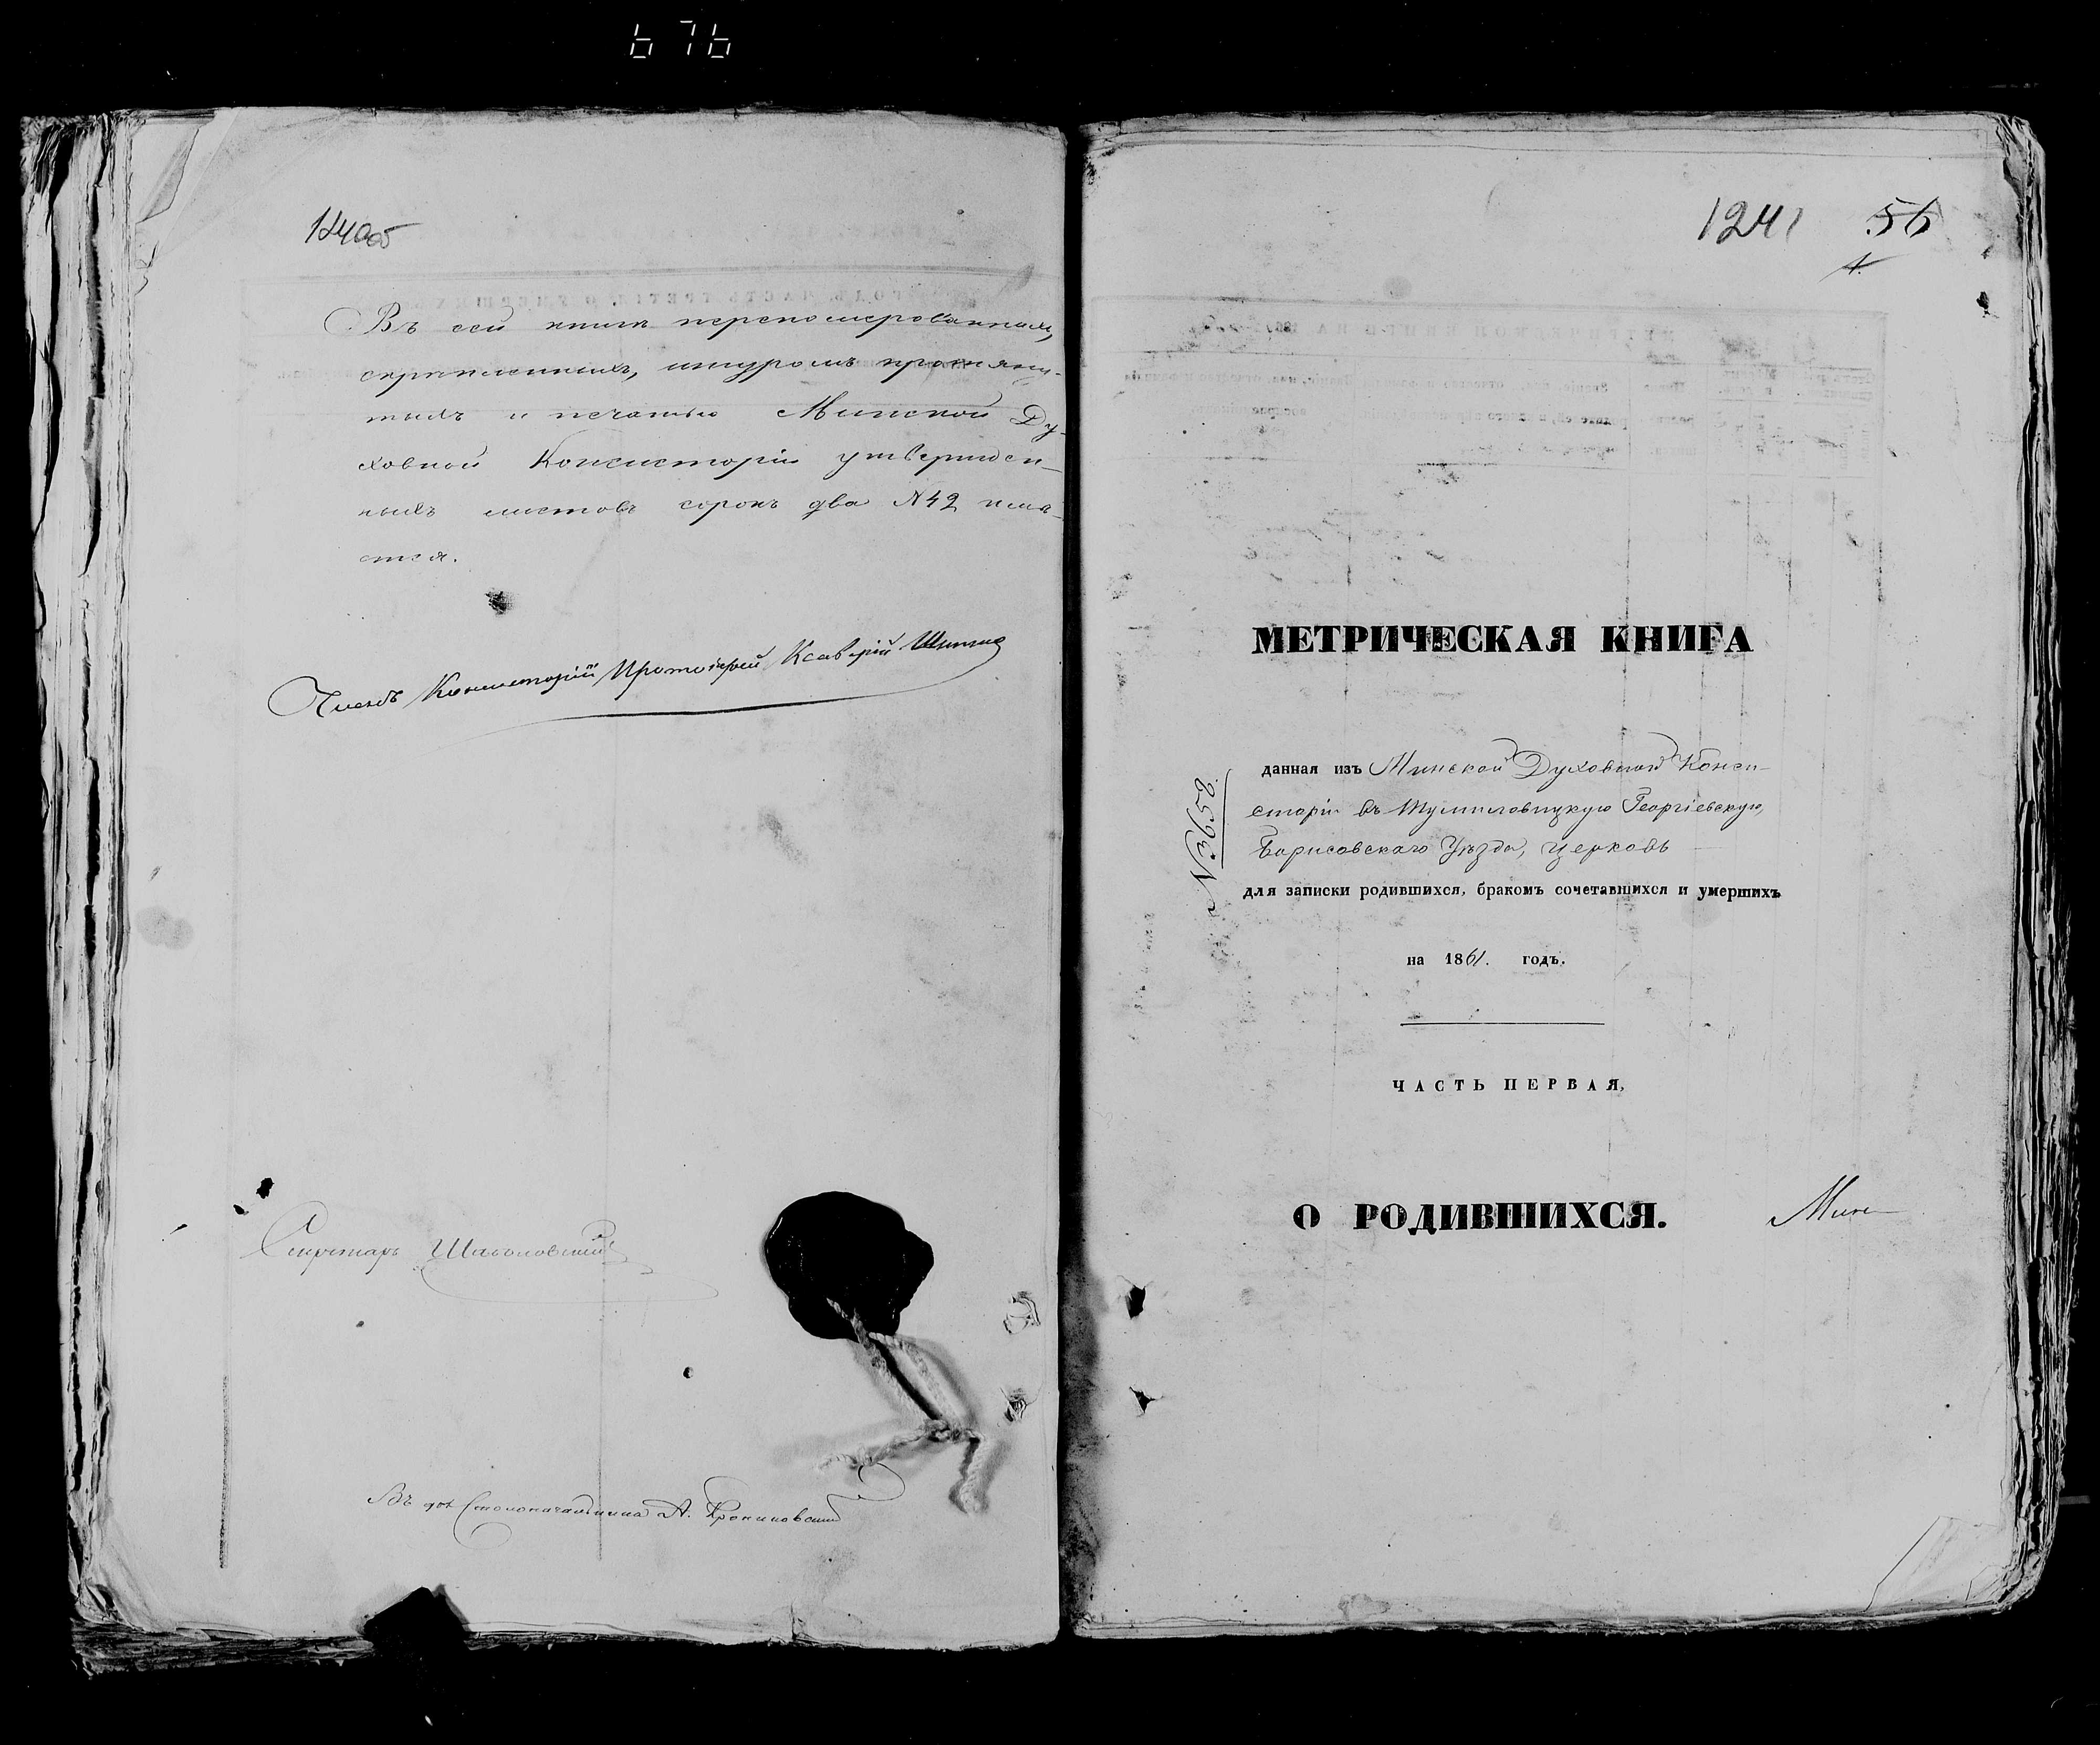 676
1240об
Въ сей книгѣ перепомерованныхъ,
скрѣпленныхъ, шнуромъ прошну-
тыхъ и печатью Минской Ду-
ховной Консисторіи утвержден-
ныхъ листовъ сорокъ два №42 нахо-
дится.
Членъ Консисторіи Протоіерей Ксаверій
Секретарь
Въ дол. Столоначальника А.
1241 56
1.
МЕТРИЧЕСКАЯ КНИГА
№3658.
данная изъ Минской Духовной Конси-
сторіи въ Шумиловицкую Георгіевскую,
Борисовскаго Уѣзда, церковь
для записки родившихся, бракомъ сочетавшихся и умершихъ
на 1861. годъ.
ЧАСТЬ ПЕРВАЯ,
О РОДИВШИХСЯ.
Мин